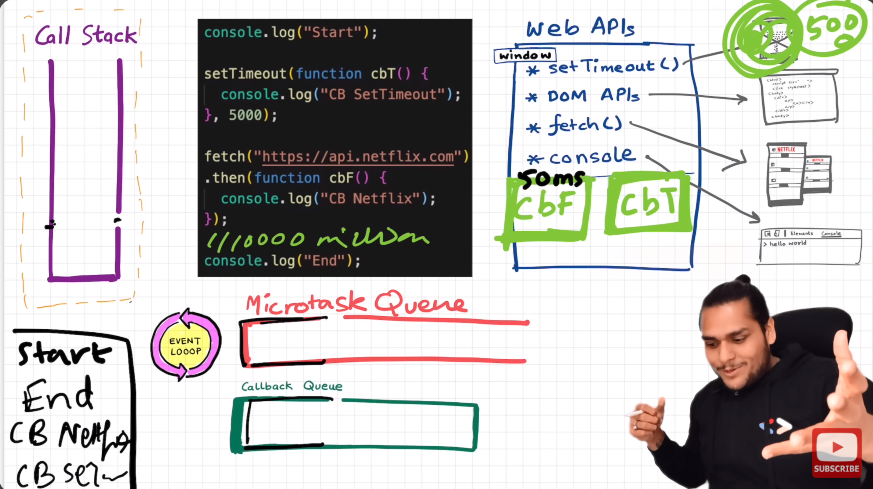 Call Stack
console.log("Start");
setTimeout(function cbT() {
console.log("CB SetTimeout");
}, 5000);
fetch("https://api.netflix.com")
.then(function cbF() {
console.log("CB Netflix");
});
// 10000 million
console.log("End");
Web APIs
window
* setTimeout()
* DOM APIs
* fetch()
* console
50ms
CbF
CbT
500
NETFLIX
Elements Console
> hello world
Microtask Queue
EVENT
LOOOP
Callback Queue
Start
End
CB Netflix
CB Set
SUBSCRIBE